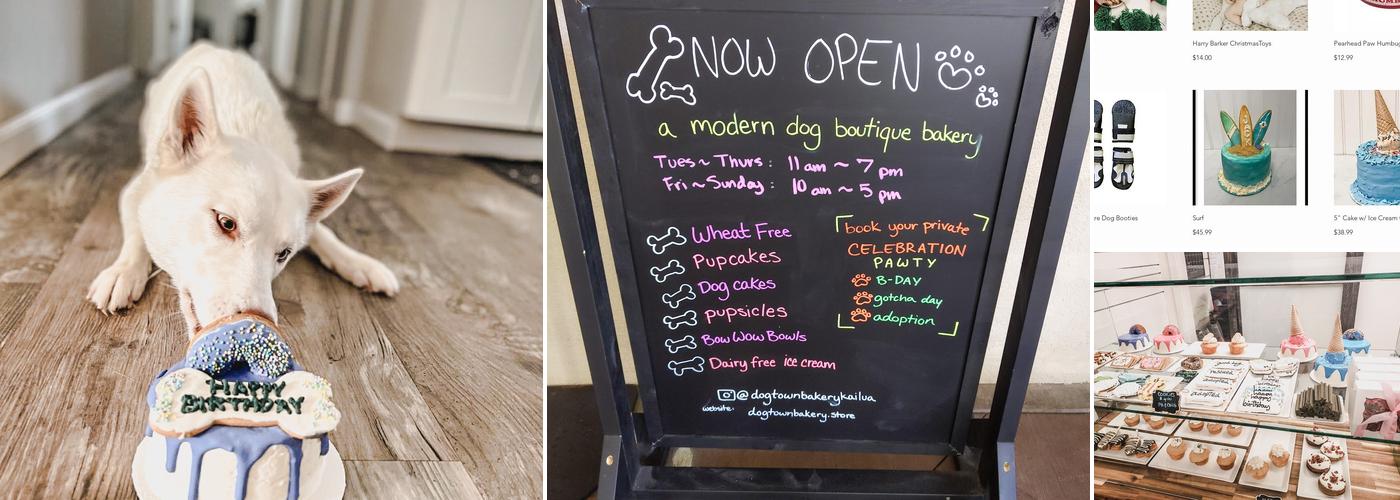 HAPPY
BIRTHDAY
NOW OPEN
a modern dog boutique bakery
Tues ~ Thurs : 11 am ~ 7 pm
Fri ~ Sunday : 10 am ~ 5 pm
Wheat Free
Pupcakes
Dog cakes
pupsicles
Bow Wow Bowls
Dairy free ice cream
book your private
CELEBRATION
PAWTY
B-DAY
gotcha day
adoption
@dogtownbakerykailua
website: dogtownbakery.store
Harry Barker ChristmasToys
$14.00
Pearhead Paw Humbug
$12.99
re Dog Booties
Surf
$45.99
5" Cake w/ Ice Cream
$38.99